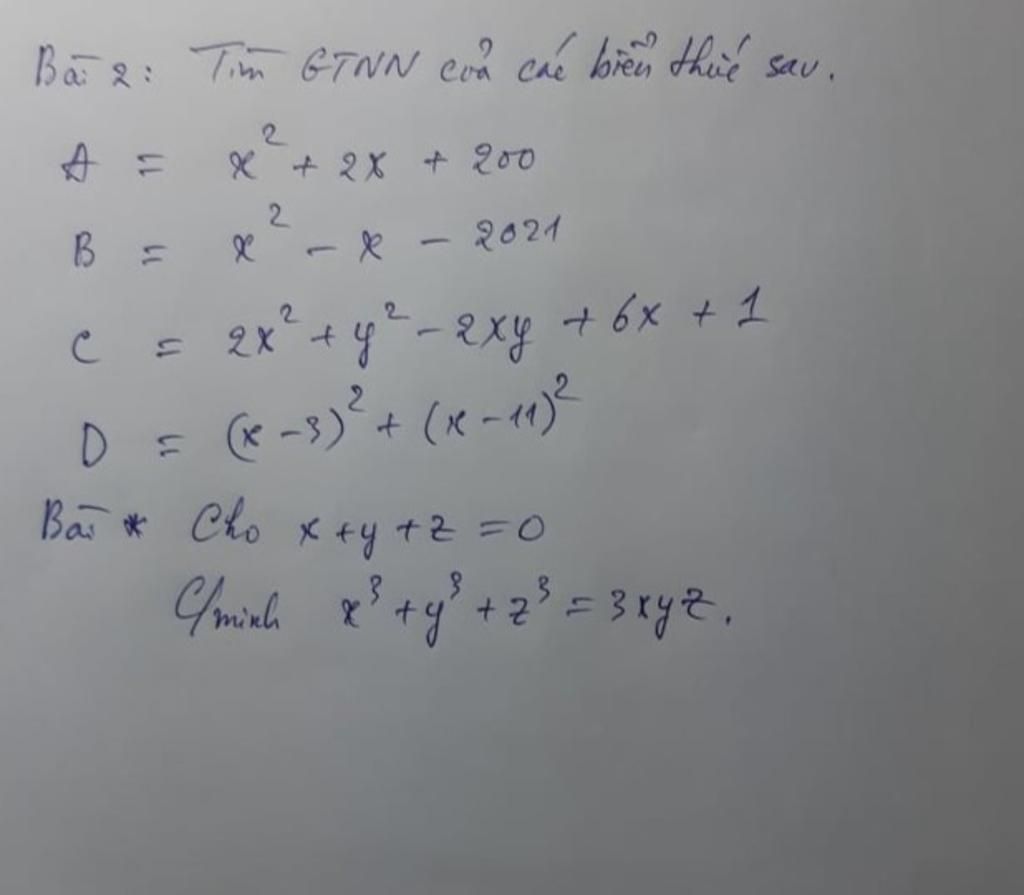 Bài 2: Tìm GTNN của các biểu thức sau.
A = x² + 2x + 200
B = x² - x - 2021
C = 2x² + y² - 2xy + 6x + 1
D = (x - 3)² + (x - 11)²
Bài * Cho x + y + z = 0
C/minh x³ + y³ + z³ = 3xyz.